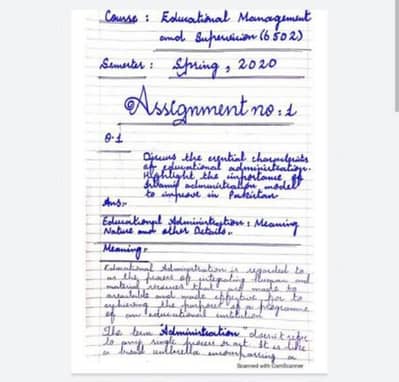 Course : Educational Management
and Supervision (6502)
Semester : Spring, 2020
Assignment no : 1
Q.1
Discuss the essential characteristics
of educational administration.
Highlight the importance of
Islamic administration model
to improve in Pakistan
Ans:-
Educational Administration : Meaning
Nature and other Details:-
Meaning:-
Educational Administration is regarded to
as the process of integrating human and
material resources that are made to
available and made effective for to
achieving the purposes of a programme
of an educational institution
The term "Administration" doesn't refer
to any single process or act. It is like
a broad umbrella encompassing a
Scanned with CamScanner